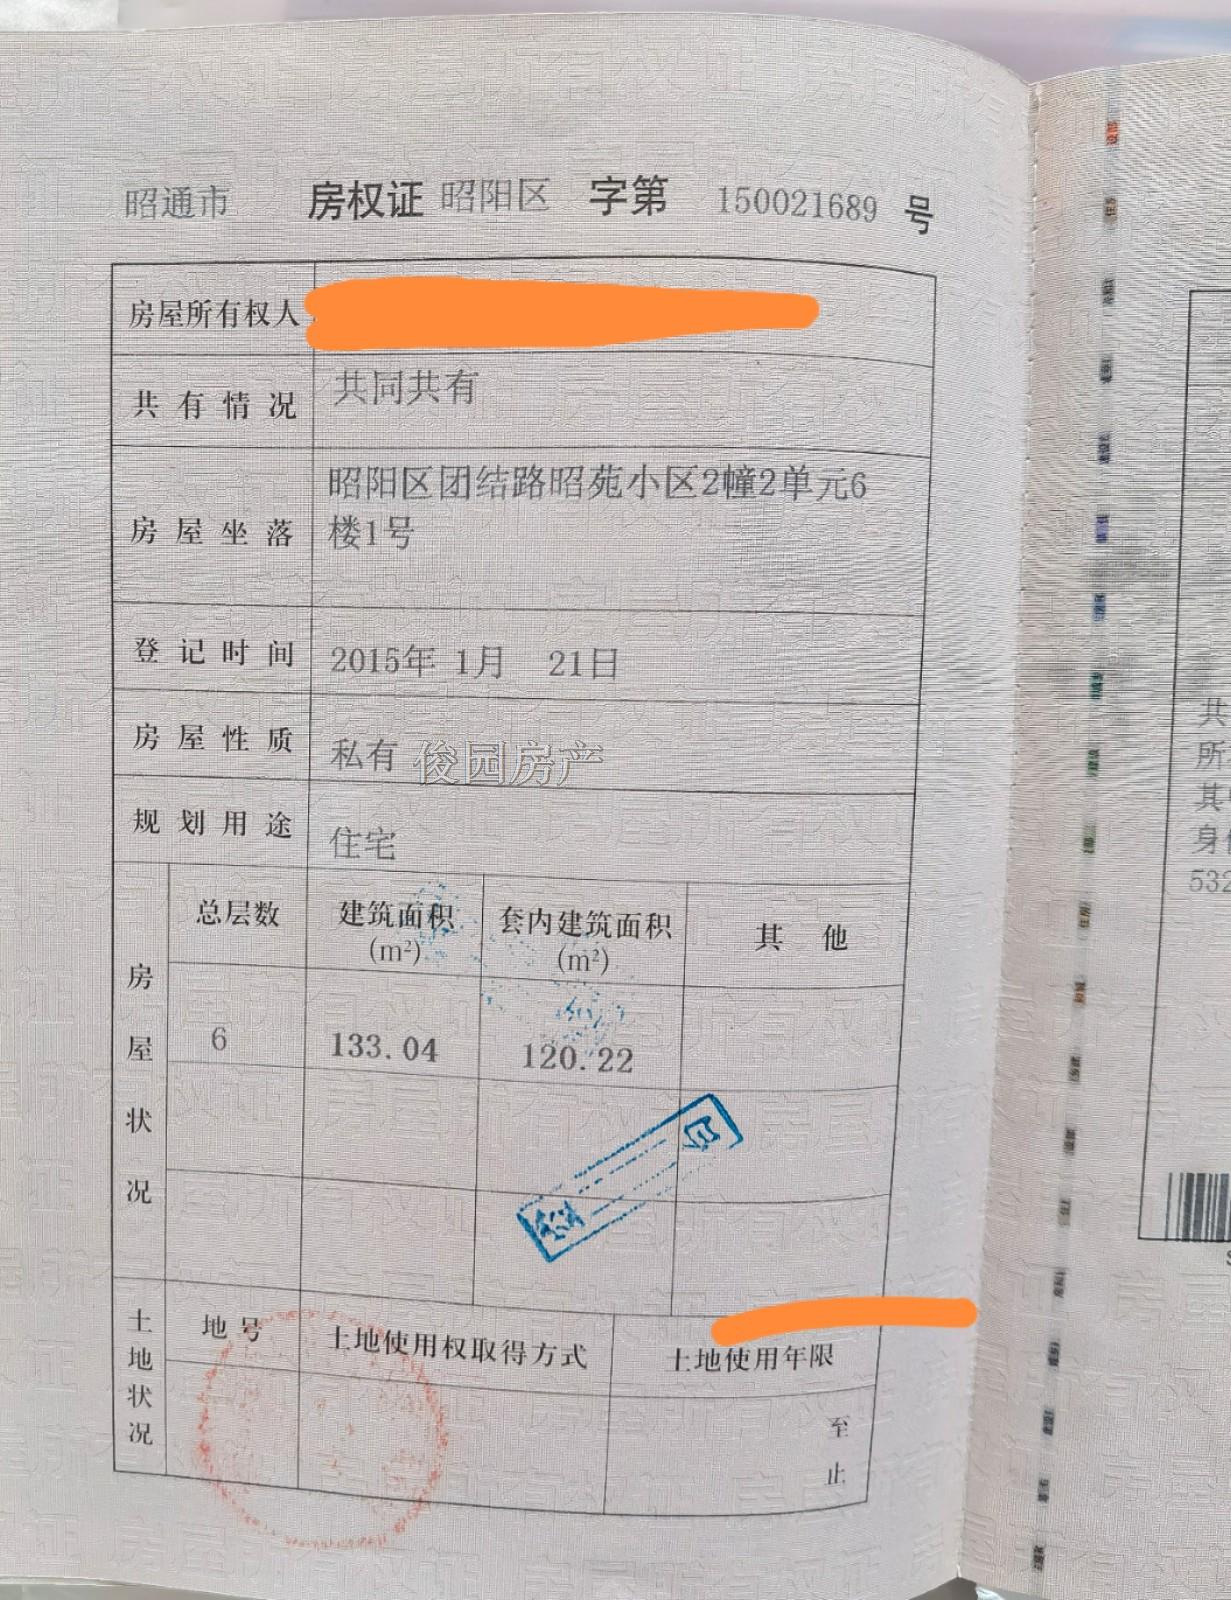 昭通市 房权证 昭阳区 字第 150021689 号
房屋所有权人
共有情况 共同共有
房屋坐落 昭阳区团结路昭苑小区2幢2单元6
楼1号
登记时间 2015年 1月 21日
房屋性质 私有
俊园房产
规划用途 住宅
房屋状况
总层数 建筑面积(m²) 套内建筑面积(m²) 其他
6 133.04 120.22
土地状况
地号 土地使用权取得方式 土地使用年限
至
止
共
所
身
532